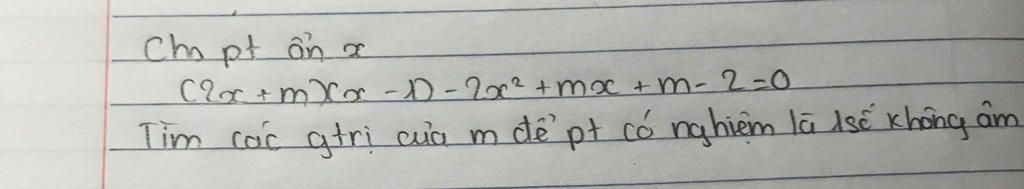 Cho pt ẩn x
(2x + m)(x - 1) - 2x² + mx + m - 2 = 0
Tìm các gtrị của m để pt có nghiệm là 1 số không âm